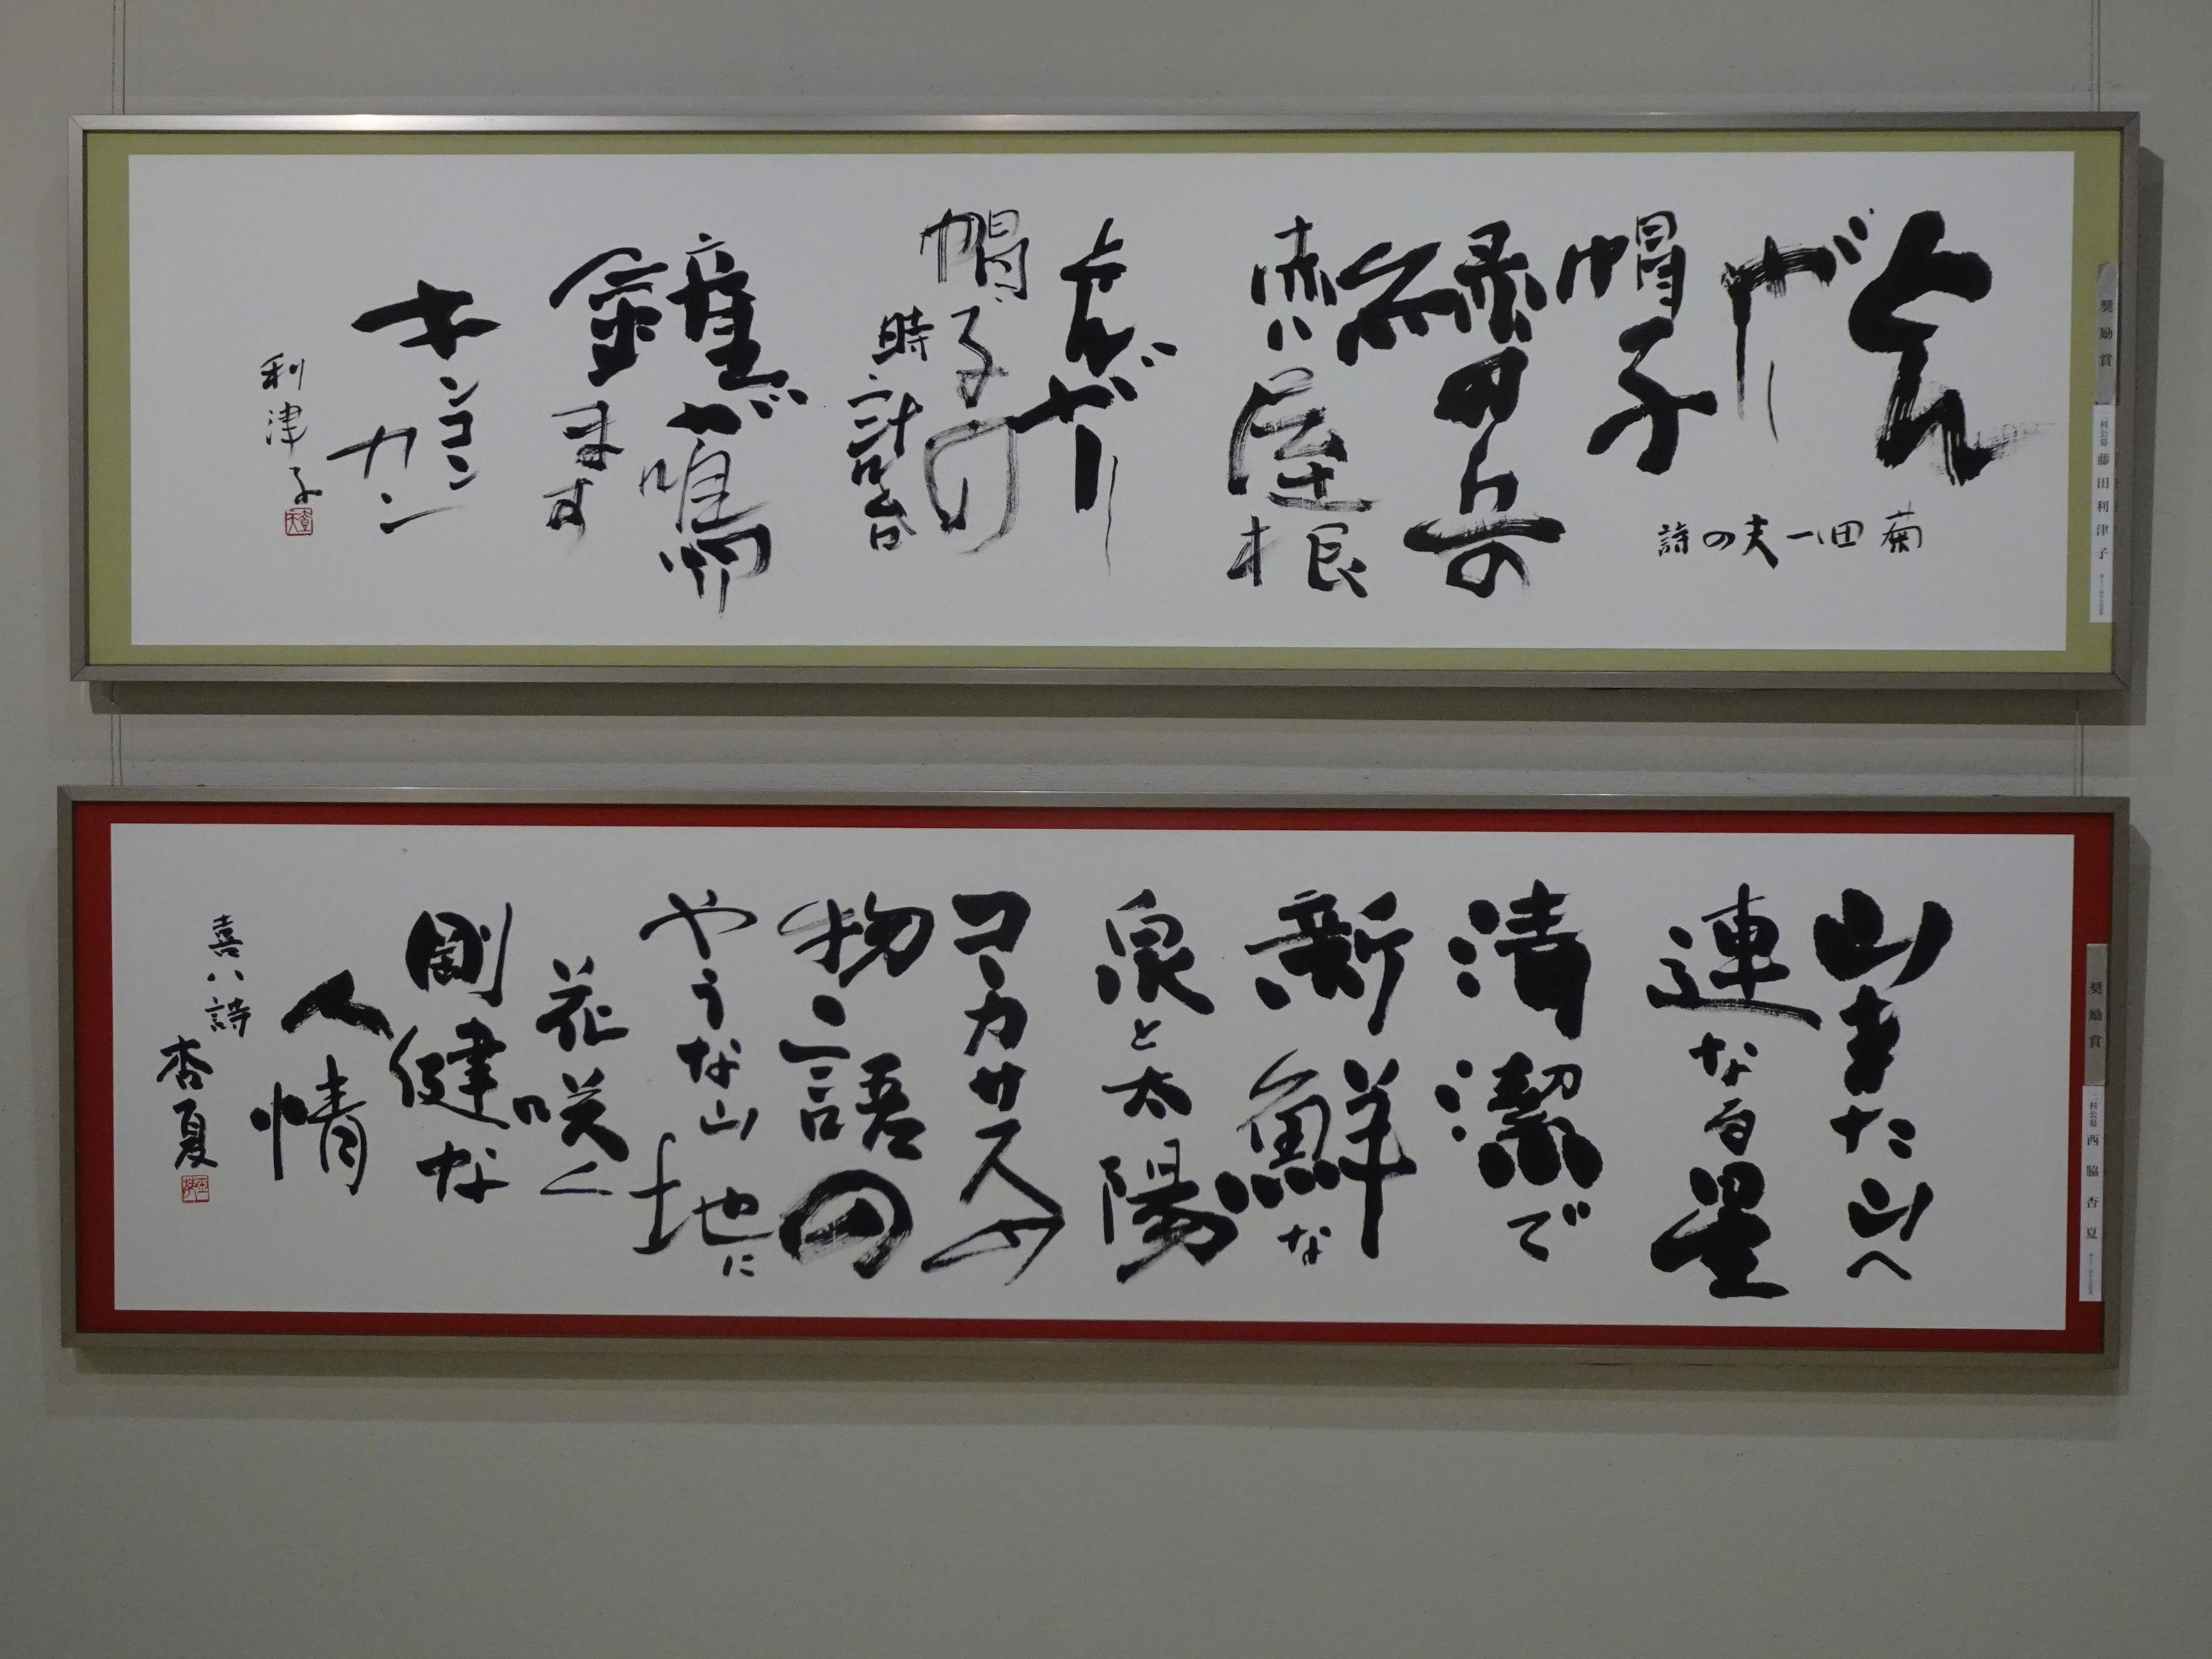 とん
がり
帽子
緑の丘
の
赤い屋根
とんがり
帽子の
時計台
鐘が鳴
ります
キンコン
カン
菊田一夫の詩
利津子
奨励賞
二科公募 藤田利津子
山また山へ
連なる星
清潔で
新鮮な
泉と太陽
コーカサスの
物語の
やうな山地に
花咲く
剛健な
人情
喜八詩
杏夏
奨励賞
二科公募 西脇杏夏